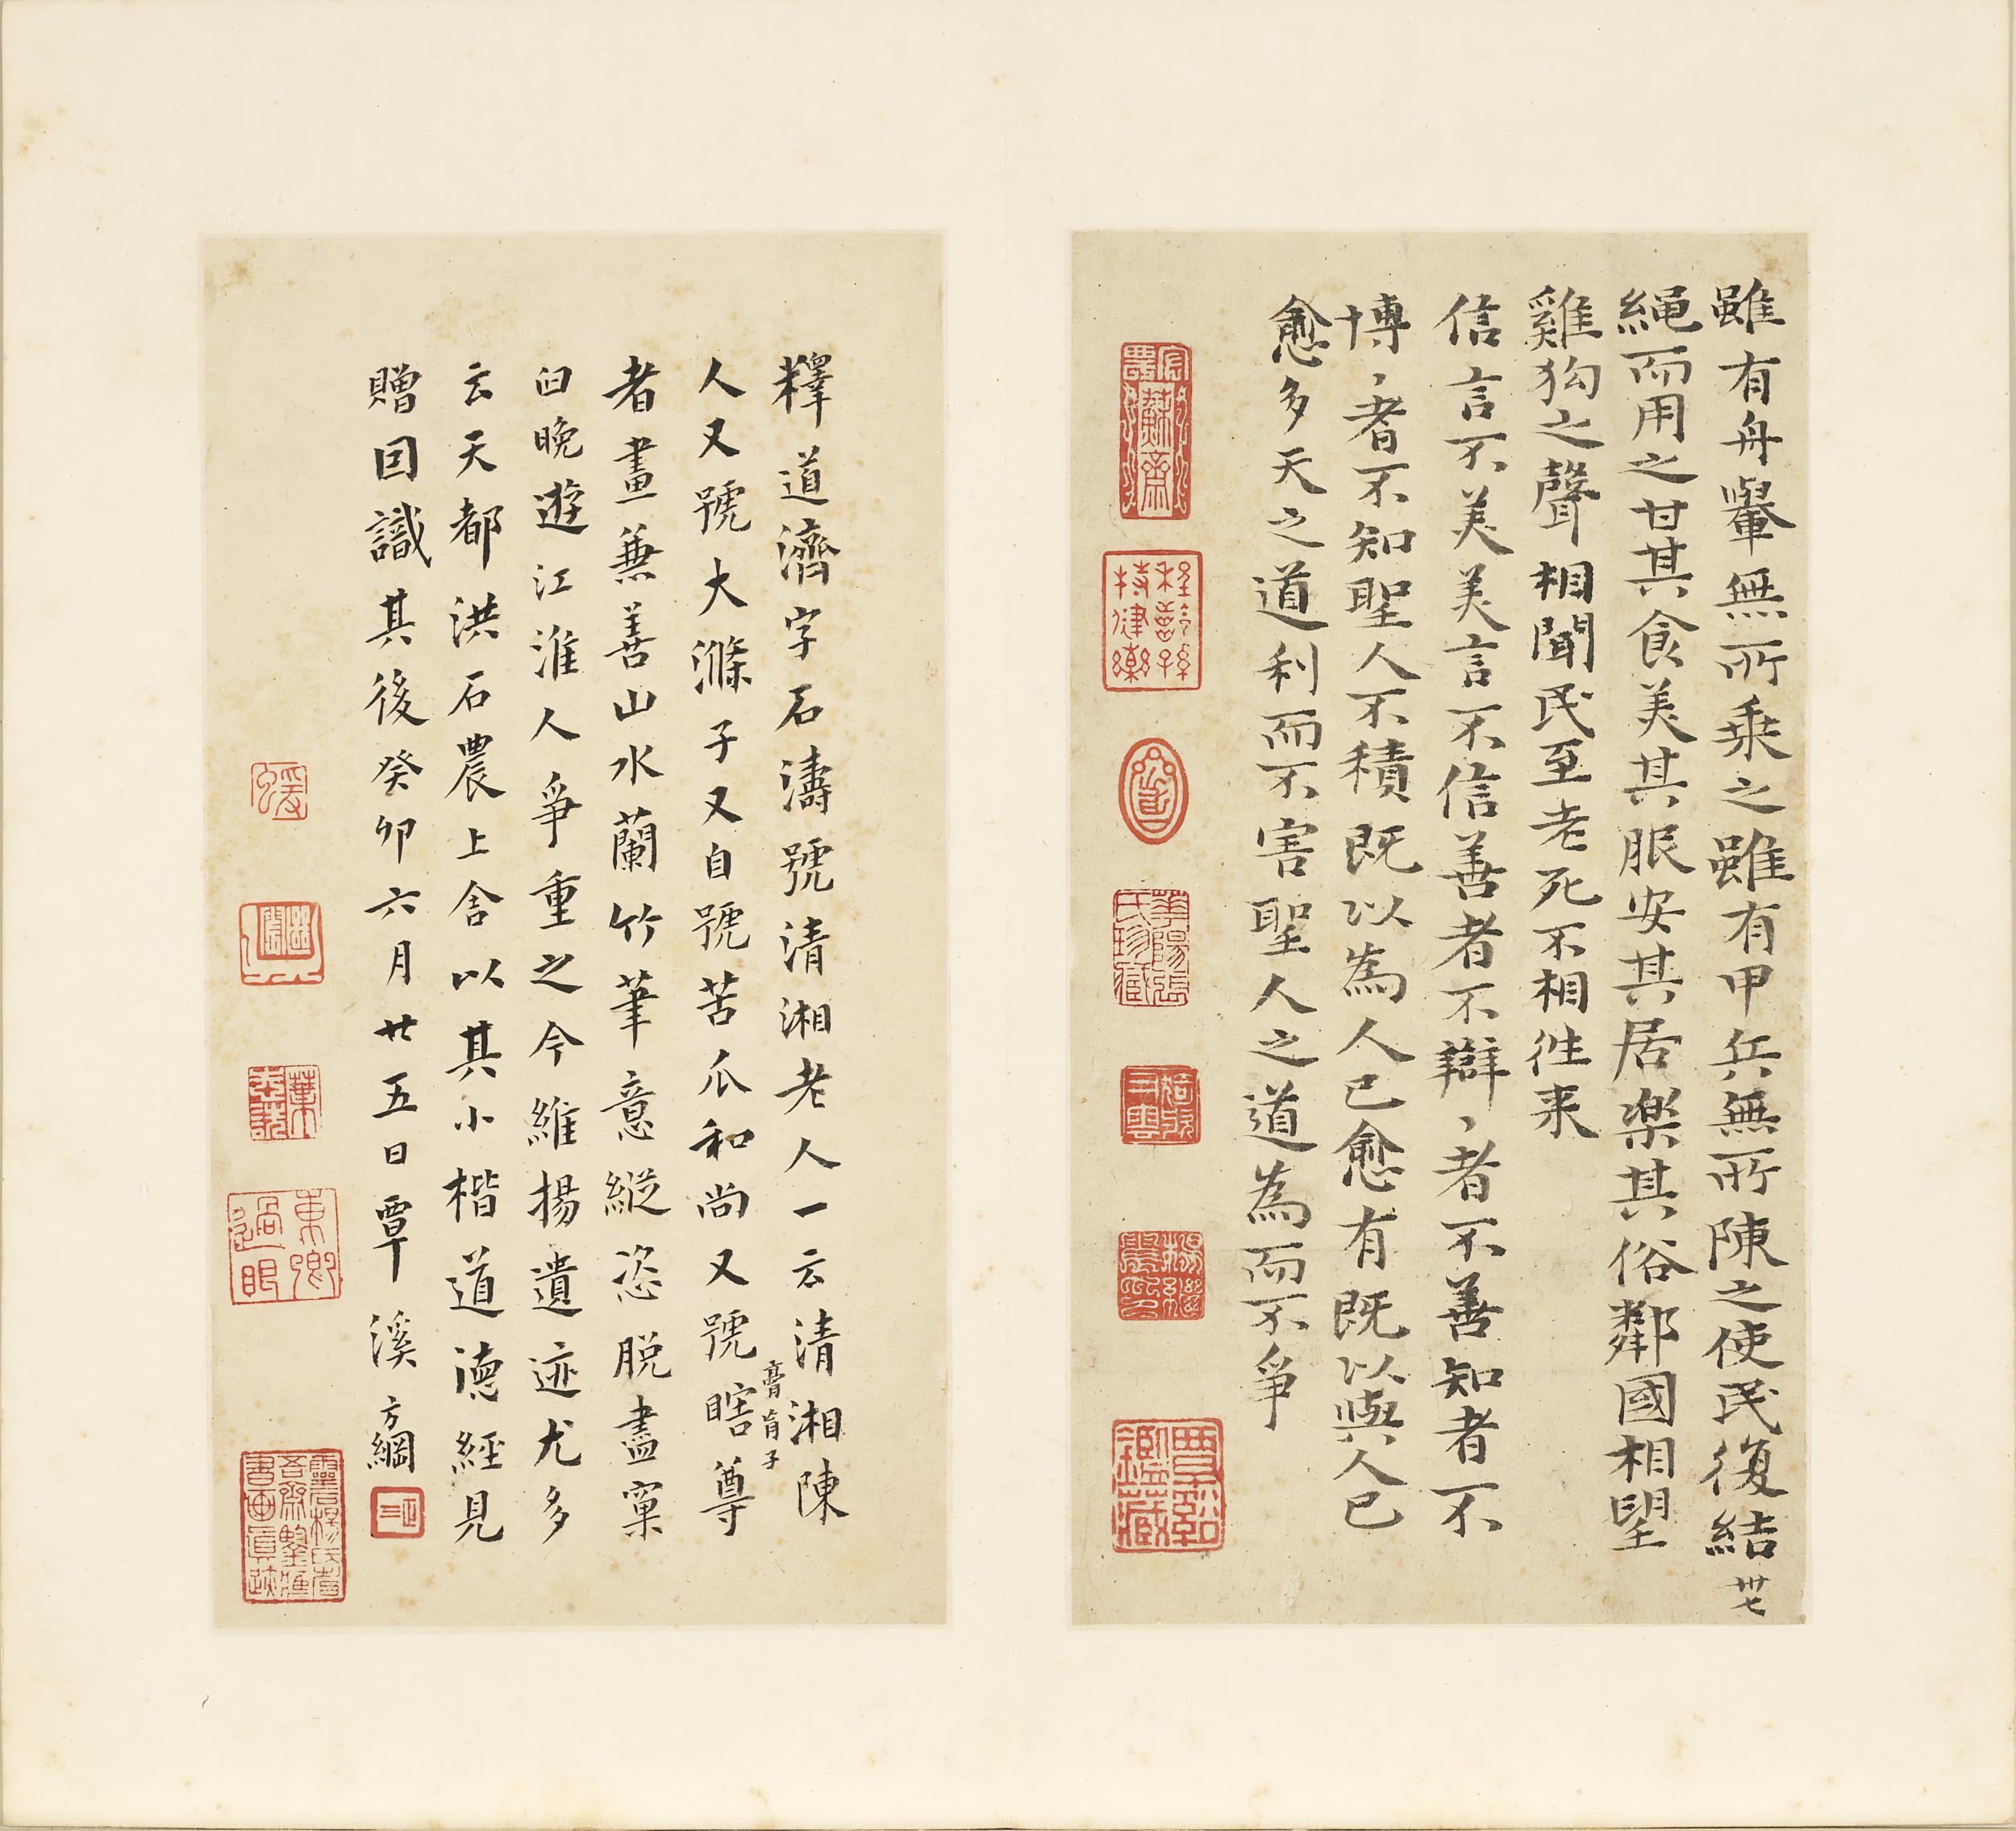 雖有舟轝無所乗之雖有甲兵無所陳之使民復結
卅七
繩而用之甘其食美其服安其居樂其俗鄰國相望
雞狗之聲相聞民至老死不相徃来
信言不美美言不信善者不辯、者不善知者不
博、者不知聖人不積既以為人已愈有既以與人已
愈多天之道利而不害聖人之道為而不爭
釋道濟字石濤號清湘老人一云清湘陳
人又號大滌子又自號苦瓜和尚又號瞎尊
膏肓子
者畫兼善山水蘭竹筆意縱恣脱盡窠
臼晚遊江淮人爭重之今維揚遺迹尤多
云天都洪石農上舍以其小楷道德經見
贈囙識其後癸卯六月廿五日覃溪方綱
東卿過眼